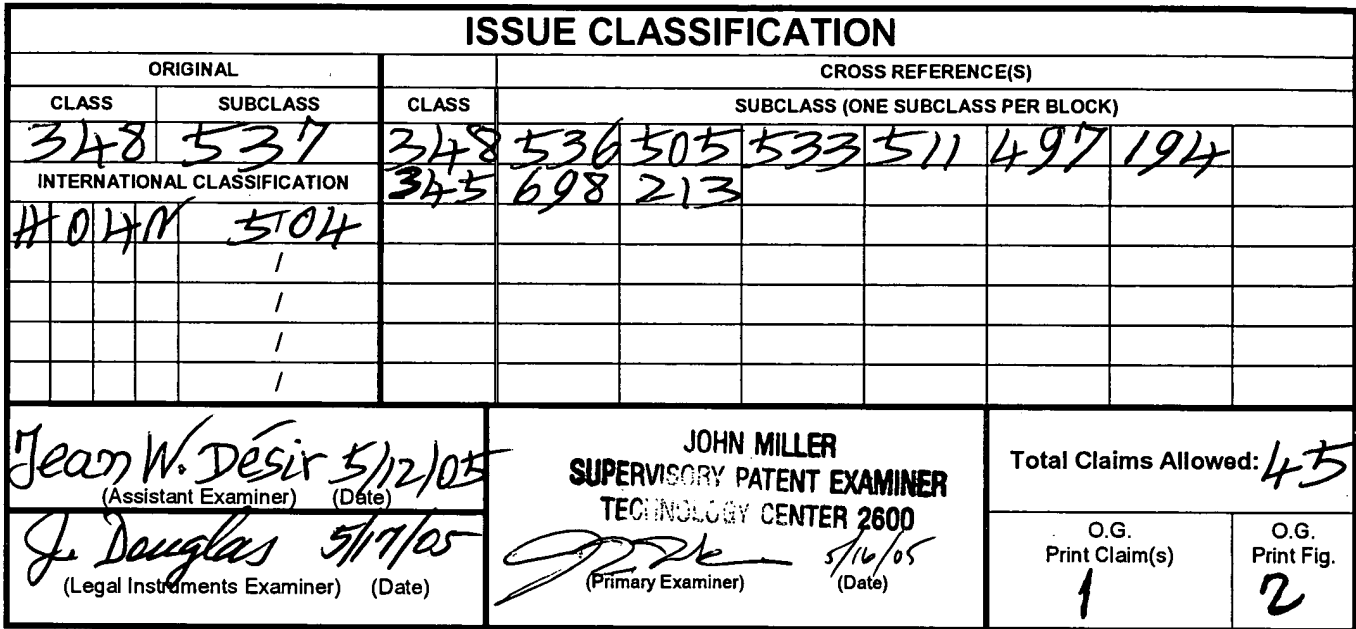 ISSUE CLASSIFICATION
ORIGINAL CROSS REFERENCE(S)
CLASS SUBCLASS CLASS SUBCLASS (ONE SUBCLASS PER BLOCK)
348 537 348 536 505 533 511 497 194
INTERNATIONAL CLASSIFICATION 345 698 213
H04N 504
/
/
/
/
Jean W. Désir 5/12/05
(Assistant Examiner) (Date)
J. Douglas 5/17/05
(Legal Instruments Examiner) (Date)
JOHN MILLER
SUPERVISORY PATENT EXAMINER
TECHNOLOGY CENTER 2600
5/16/05
(Primary Examiner) (Date)
Total Claims Allowed: 45
O.G.
Print Claim(s)
1
O.G.
Print Fig.
2